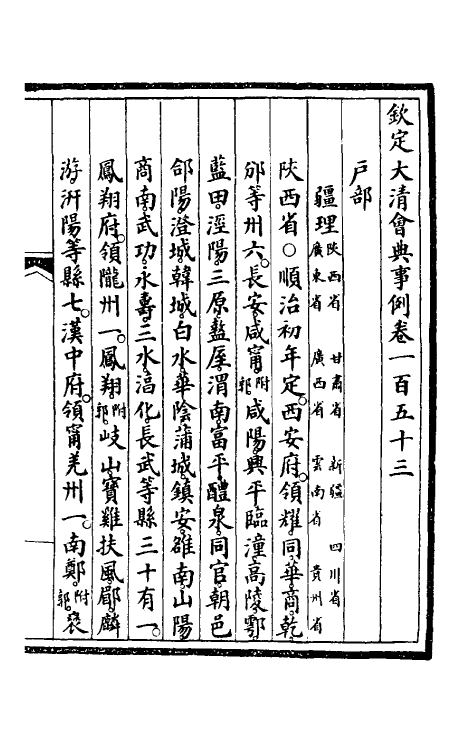 欽定大清會典事例卷一百五十三
戶部
疆理陝西省 甘肅省 新疆 四川省 廣東省 廣西省 雲南省 貴州省
陝西省○順治初年定。西安府。領耀。同。華。商。乾。
邠等州六。長安。咸甯。附郭。咸陽。興平。臨潼。高陵。鄠。
藍田。涇陽。三原。盩厔。渭南。富平。醴泉。同官。朝邑
郃陽。澄城。韓城。白水。華陰。蒲城。鎮安。雒南。山陽
商南。武功。永壽。三水。淳化。長武等縣三十有一。
鳳翔府。領隴州一。鳳翔。附郭。岐山。寶雞。扶風。郿。麟
游。汧陽等縣七。漢中府。領甯羌州一。南鄭。附郭。褒